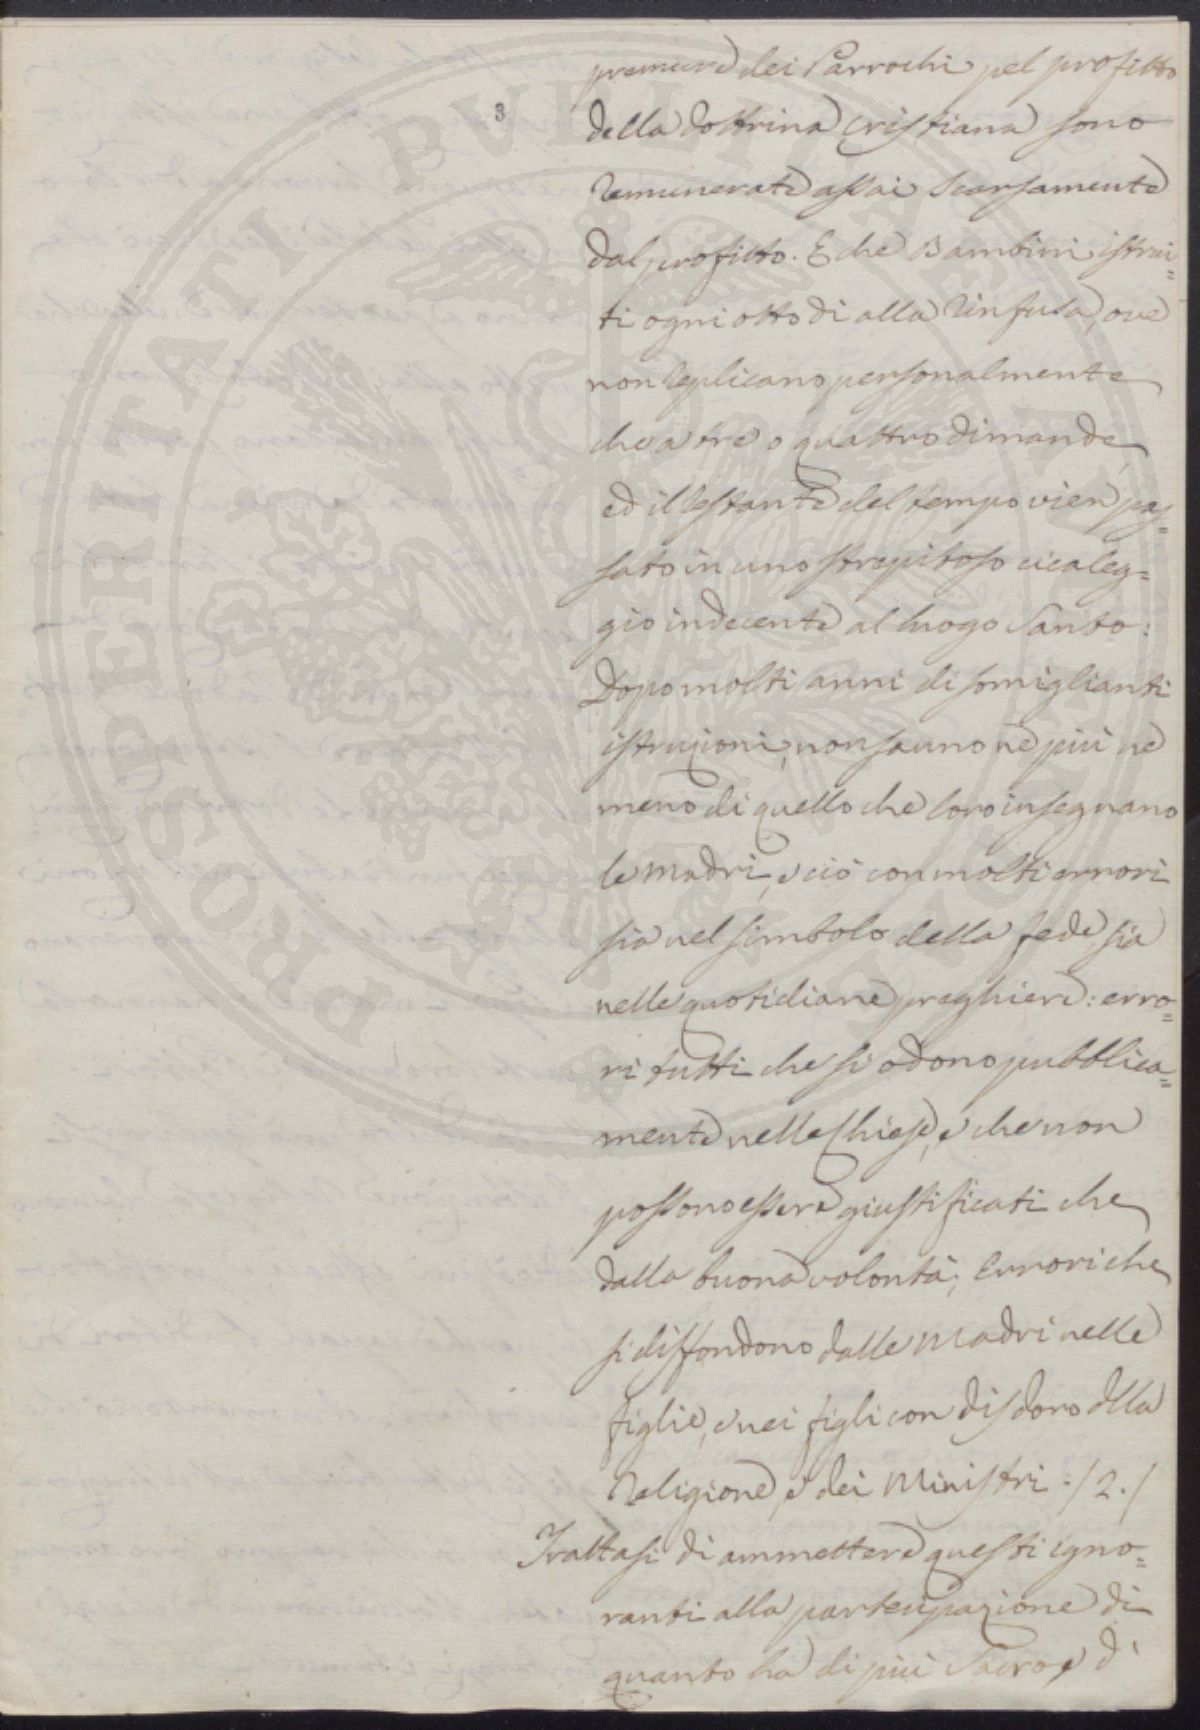 3
premure dei Parrochi pel profitto
della Dottrina Cristiana sono
remunerate assai scarsamente
dal profitto. E che Bambini istrui=
ti ogni otto dì alla rinfusa, ove
non replicano personalmente
che a tre o quattro dimande,
ed il restante del tempo vien pas=
sato in uno strepitoso cicaleg=
gio indecente al luogo Santo:
Dopo molti anni di somiglianti
istruzioni, non sanno nè più nè
meno di quello che loro insegnano
le Madri, e ciò con molti errori
sia nel simbolo della fede, sia
nelle quotidiane preghiere: erro=
ri tutti che si odono pubblica=
mente nelle Chiese, e che non
possono essere giustificati che
dalla buona volontà; Errori che
si diffondono dalle Madri nelle
figlie, e nei figli con disdoro della
Religione, e dei Ministri ./2./
Trattasi di ammettere questi igno=
ranti alla partecipazione di
quanto ha di più Sacro, e di
PROSPERITATI PVBLICAE AVGENDAE